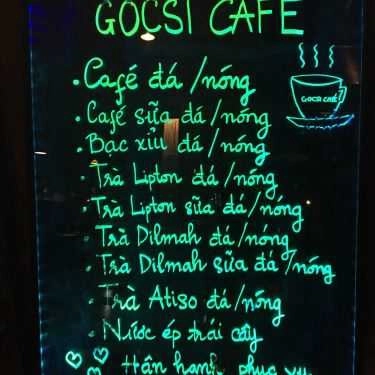 GOCSI CAFE
• Café đá /nóng
• Café sữa đá /nóng
• Bạc xỉu đá /nóng
• Trà Lipton đá /nóng
• Trà Lipton sữa đá/nóng
• Trà Dilmah đá /nóng
• Trà Dilmah sữa đá /nóng
• Trà Atiso đá/nóng
• Nước ép trái cây
Hân hạnh phục vụ